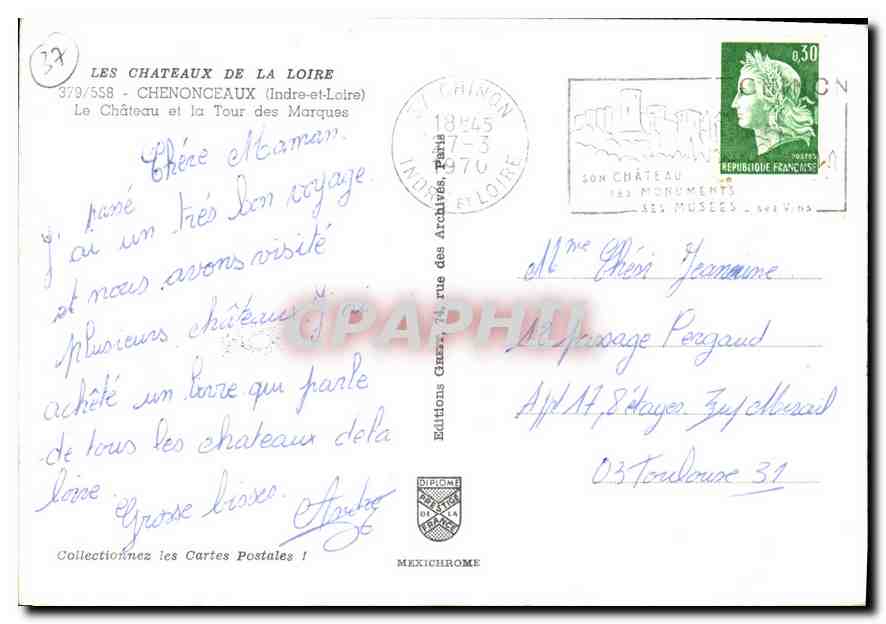 37
LES CHATEAUX DE LA LOIRE
379/558 - CHENONCEAUX (Indre-et-Loire)
Le Château et la Tour des Marques
Chére Maman.
J'ai passé un trés bon voyage.
et nous avons visité
plusieurs châteaux J'ai
achété un livre qui parle
de tous les chateaux de la
loire.
Grosse bisses.
André
Collectionnez les Cartes Postales !
Editions GREFF, 74, rue des Archives, Paris
DIPLOME
PRESTIGE
DE LA
FRANCE
MEXICHROME
37 CHINON
18H45
7-3
1970
INDRE ET LOIRE
CHINON
SON CHÂTEAU
SES MONUMENTS
SES MUSÉES - SES VINS
0,30
POSTES
REPUBLIQUE FRANÇAISE
Mme Chéri Jeannine
12 passage Pergaud
Appt 17, 8 étages Zup Mirail
03 Toulouse 31
CPAPHIL